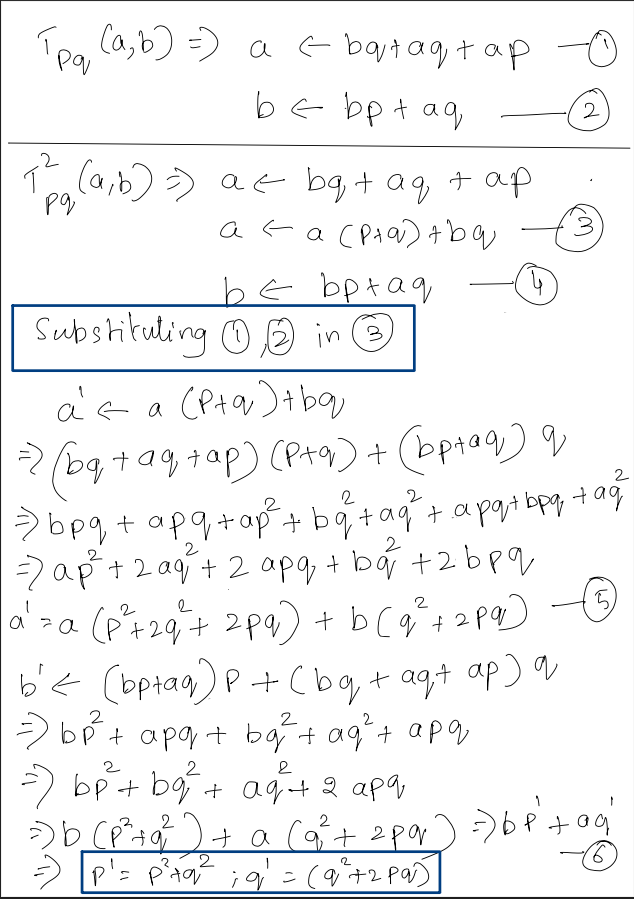 T_pq (a,b) ⇒ a ← bq+aq+ap —①
b ← bp+aq —②
T²_pq (a,b) ⇒ a ← bq+aq+ap
a ← a(p+q)+bq —③
b ← bp+aq —④
Substituting ①,② in ③
a' ← a(p+q)+bq
⇒ (bq+aq+ap)(p+q)+(bp+aq)q
⇒ bpq+apq+ap²+bq²+aq²+apq+bpq+aq²
⇒ ap²+2aq²+2apq+bq²+2bpq
a' = a(p²+2q²+2pq)+b(q²+2pq) —⑤
b' ← (bp+aq)p+(bq+aq+ap)q
⇒ bp²+apq+bq²+aq²+apq
⇒ bp²+bq²+aq²+2apq
⇒ b(p²+q²)+a(q²+2pq) ⇒ bp'+aq' —⑥
⇒ p'=p²+q² ; q'=(q²+2pq)